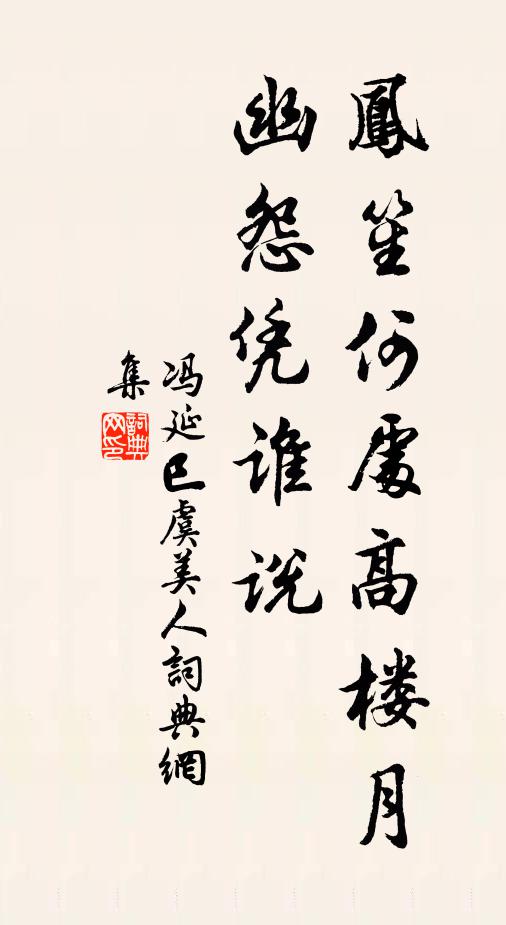 鳳笙何處高楼月
幽怨凭谁説
冯延巳虞美人詞典網
集
詞典网印